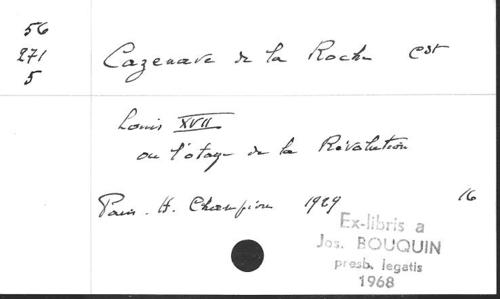 56
271
5
Cazenave de la Roche Cst
Louis XVII
ou l'otage de la Révolution
Paris. H. Champion 1929 16
Ex-libris a
Jos. BOUQUIN
presb. legatis
1968